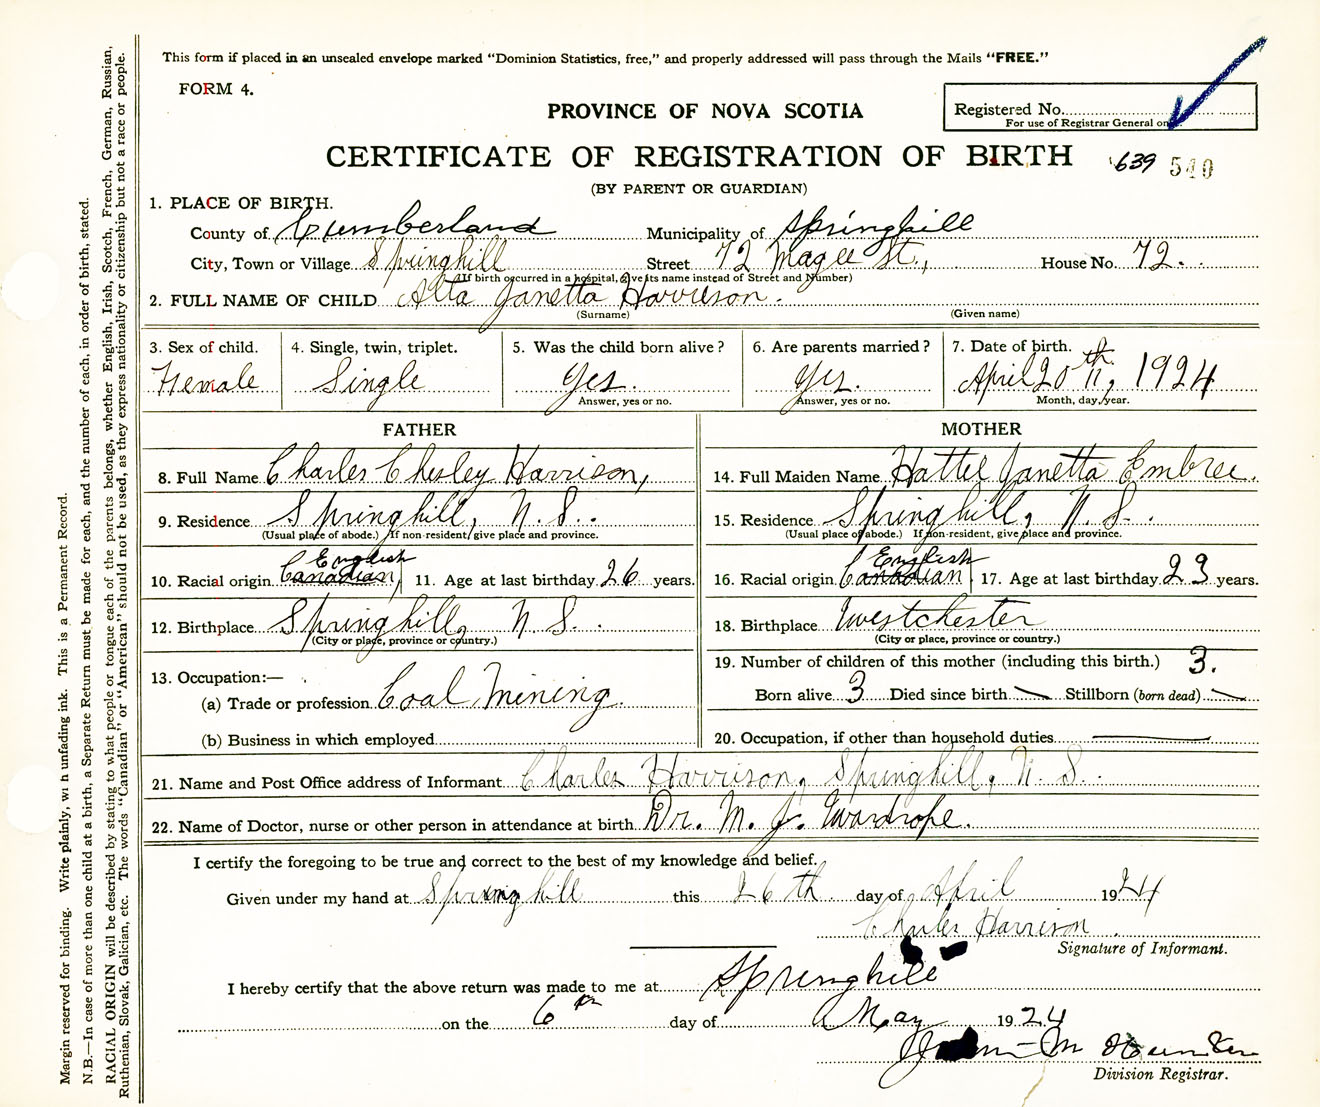 This form if placed in an unsealed envelope marked "Dominion Statistics, free," and properly addressed will pass through the Mails "FREE."
FORM 4.
PROVINCE OF NOVA SCOTIA
Registered No.
For use of Registrar General on
CERTIFICATE OF REGISTRATION OF BIRTH
639 540
(BY PARENT OR GUARDIAN)
1. PLACE OF BIRTH.
County of Cumberland Municipality of Springhill
City, Town or Village Springhill Street 72 Magee St., House No. 72.
(If birth occurred in a hospital, give its name instead of Street and Number)
2. FULL NAME OF CHILD Alta Janetta Harrison.
(Surname) (Given name)
3. Sex of child. 4. Single, twin, triplet. 5. Was the child born alive? 6. Are parents married? 7. Date of birth.
Female Single Yes. Yes. April 20th, 1924
Answer, yes or no. Answer, yes or no. Month, day, year.
FATHER MOTHER
8. Full Name Charles Chesley Harrison, 14. Full Maiden Name Hattie Janetta Embree.
9. Residence Springhill, N. S. 15. Residence Springhill, N. S.
(Usual place of abode.) If non-resident, give place and province. (Usual place of abode.) If non-resident, give place and province.
English English
10. Racial origin Canadian, 11. Age at last birthday 26 years. 16. Racial origin Canadian 17. Age at last birthday 23 years.
12. Birthplace Springhill, N. S. 18. Birthplace Westchester
(City or place, province or country.) (City or place, province or country.)
13. Occupation:— 19. Number of children of this mother (including this birth.) 3.
(a) Trade or profession Coal Mining. Born alive 3 Died since birth — Stillborn (born dead) —
(b) Business in which employed 20. Occupation, if other than household duties —
21. Name and Post Office address of Informant Charles Harrison, Springhill, N. S.
22. Name of Doctor, nurse or other person in attendance at birth Dr. M. J. Wardrope.
I certify the foregoing to be true and correct to the best of my knowledge and belief.
Given under my hand at Springhill this 26th day of April 1924
Charles Harrison.
Signature of Informant.
I hereby certify that the above return was made to me at Springhill
on the 6th day of May 1924
M
Division Registrar.
Margin reserved for binding. Write plainly, with unfading ink. This is a Permanent Record.
N.B.—In case of more than one child at a birth, a Separate Return must be made for each, and the number of each, in order of birth, stated.
RACIAL ORIGIN will be described by stating to what people or tongue each of the parents belongs, whether English, Irish, Scotch, French, German, Russian,
Ruthenian, Slovak, Galician, etc. The words "Canadian" or "American" should not be used, as they express nationality or citizenship but not a race or people.